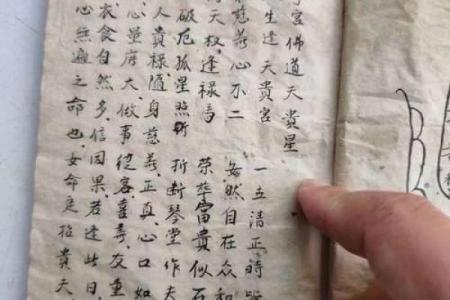 宫佛道天貴星
生逢天貴宮 一立清正時
慈善心不二 安然自在众和
天权逢禄马 荣华富貴似石
破厄孤星照 折断琴堂作夫
人貴禄随身慈善正真心口如
心量廣大做事從容喜善友重
衣食自然多信因果若逢此日
心無遍之命也女命定招貴夫